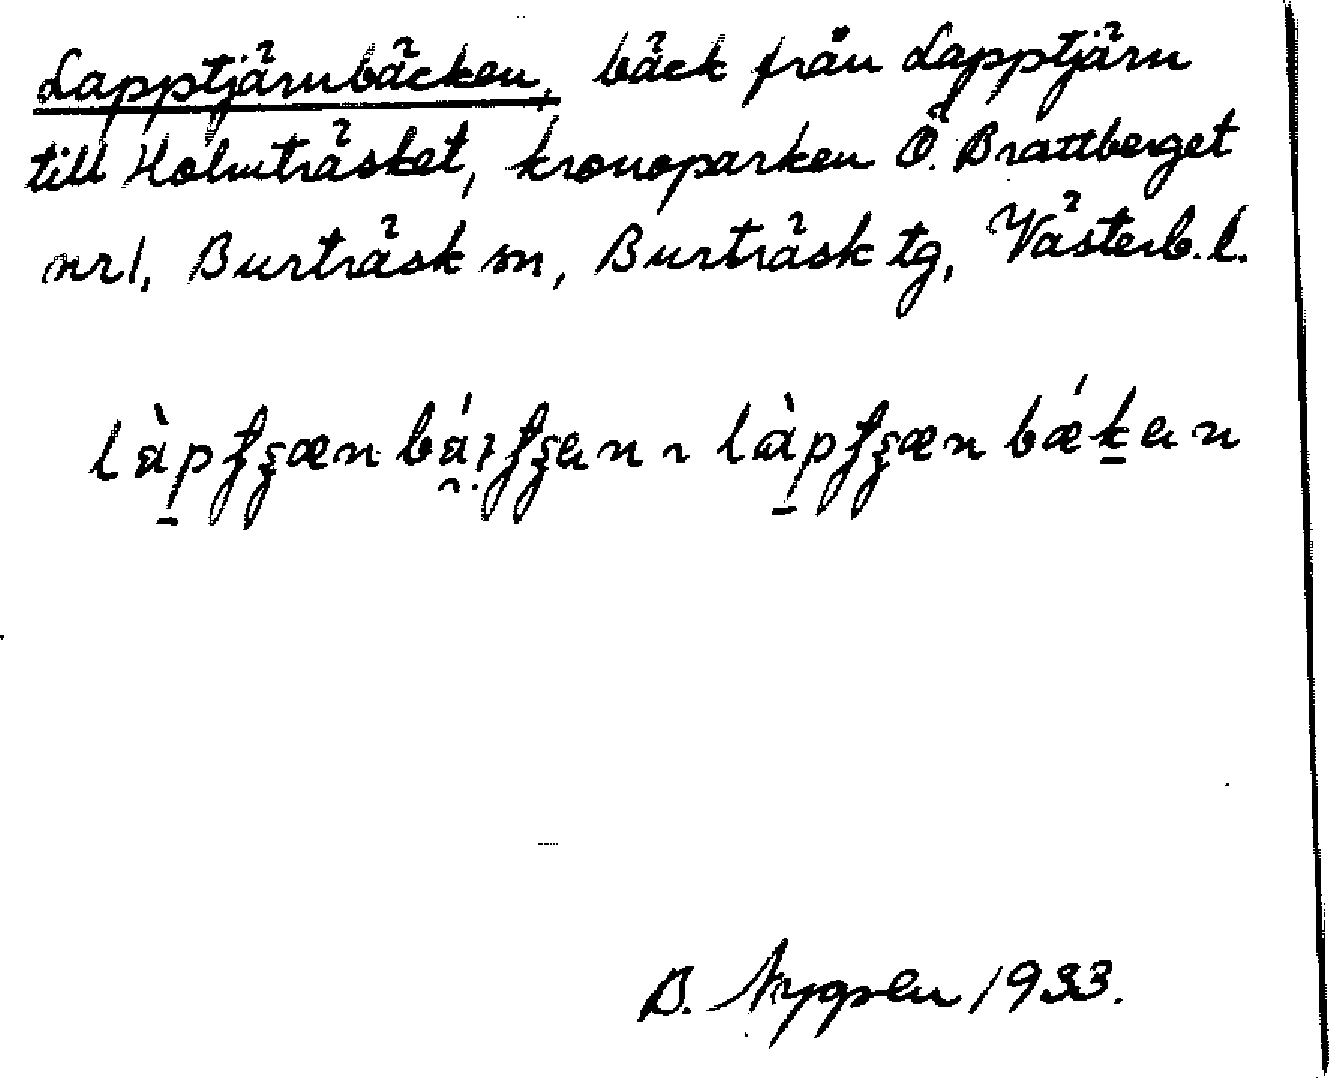 Lapptjärnbäcken, bäck från Lapptjärn
till Holmträsket, kronoparken Ö. Brattberget
nr 1, Burträsk sn, Burträsk tg, Västerb. l.
B. Nygren 1933.